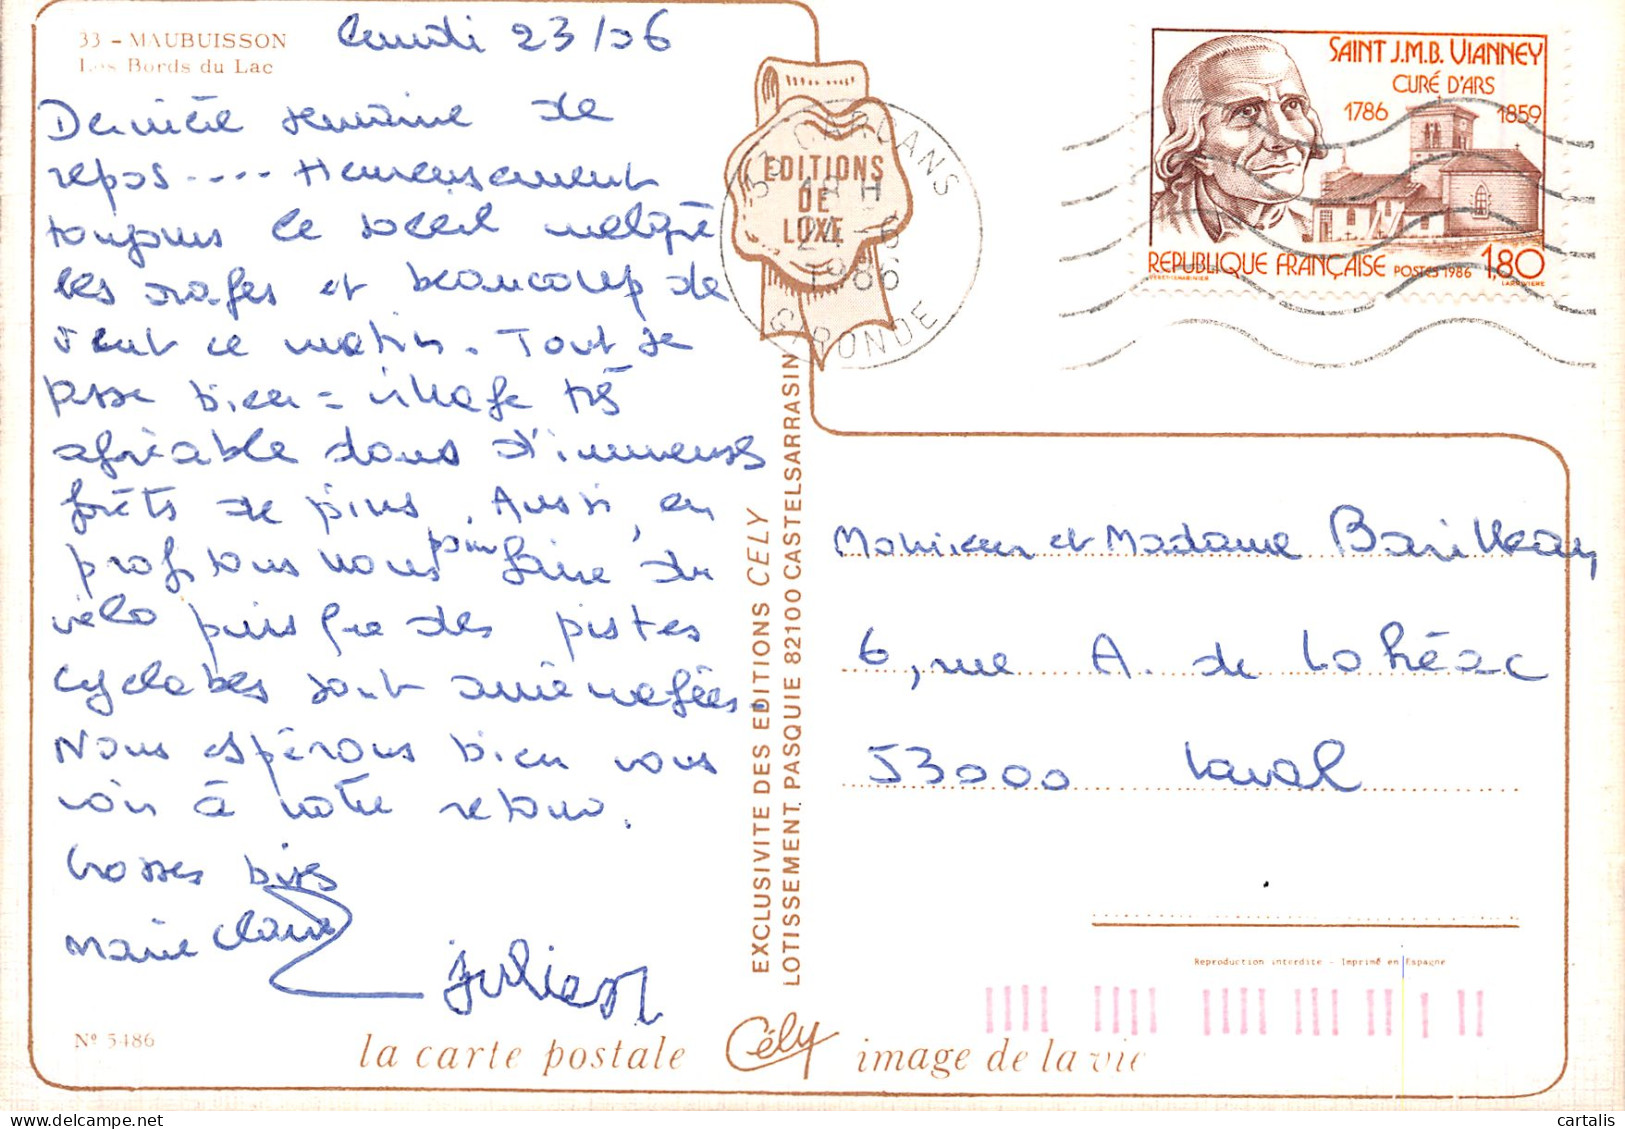 33 - MAUBUISSON
Les Bords du Lac
Lundi 23/06
Dernière semaine de
repos .... Heureusement
toujours le soleil malgré
les orages et beaucoup de
vent ce matin. Tout se
passe bien = village très
agréable dans d'immenses
forêts de pins. Aussi, en
profitons nous pour faire du
vélo puisque des pistes
cyclables sont aménagées.
Nous espérons bien vous
voir à notre retour.
Grosses bises
Marie Claire
Julien
Nº 5486
EDITIONS
DE
LUXE
33 CARCANS
24 -6
1986
GIRONDE
SAINT J.M.B. VIANNEY
CURÉ D'ARS
1786 1859
REPUBLIQUE FRANÇAISE POSTES 1986 1,80
EXCLUSIVITE DES EDITIONS CELY
LOTISSEMENT PASQUIE 82100 CASTELSARRASIN
Monsieur et Madame Barilleau
6, rue A. de Lohéac
53000 Laval
Reproduction interdite - Imprimé en Espagne
la carte postale Cély image de la vie
cartalis